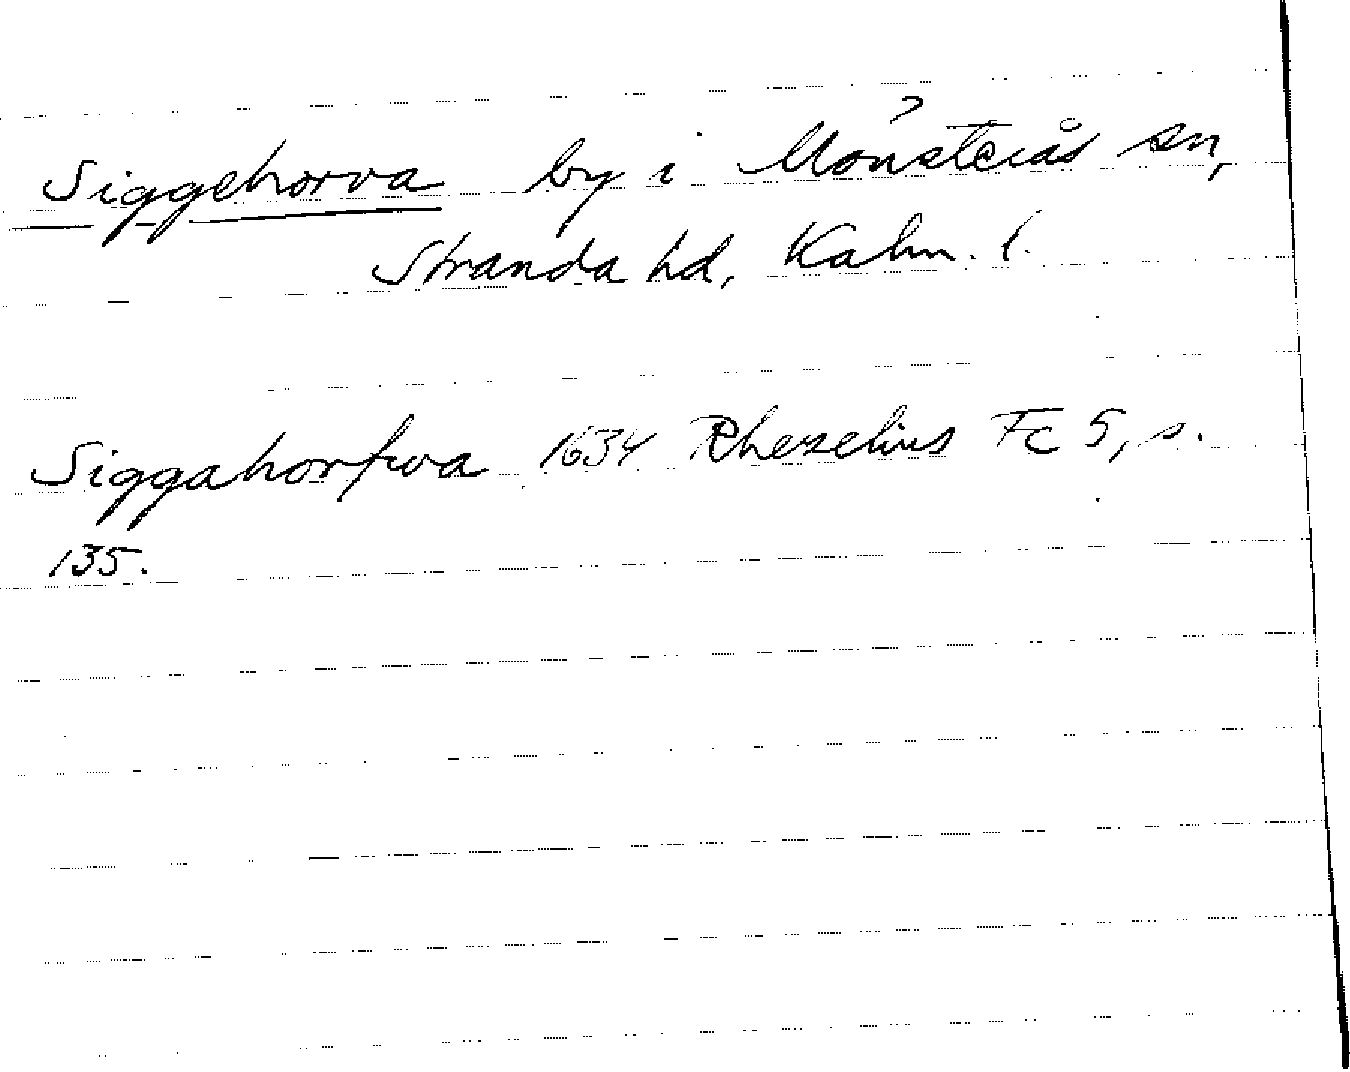 Siggehorva by i Mönsterås sn,
Stranda hd, Kalm. l.
Siggahorfwa 1634 Rhezelius Fc 5, s.
135.